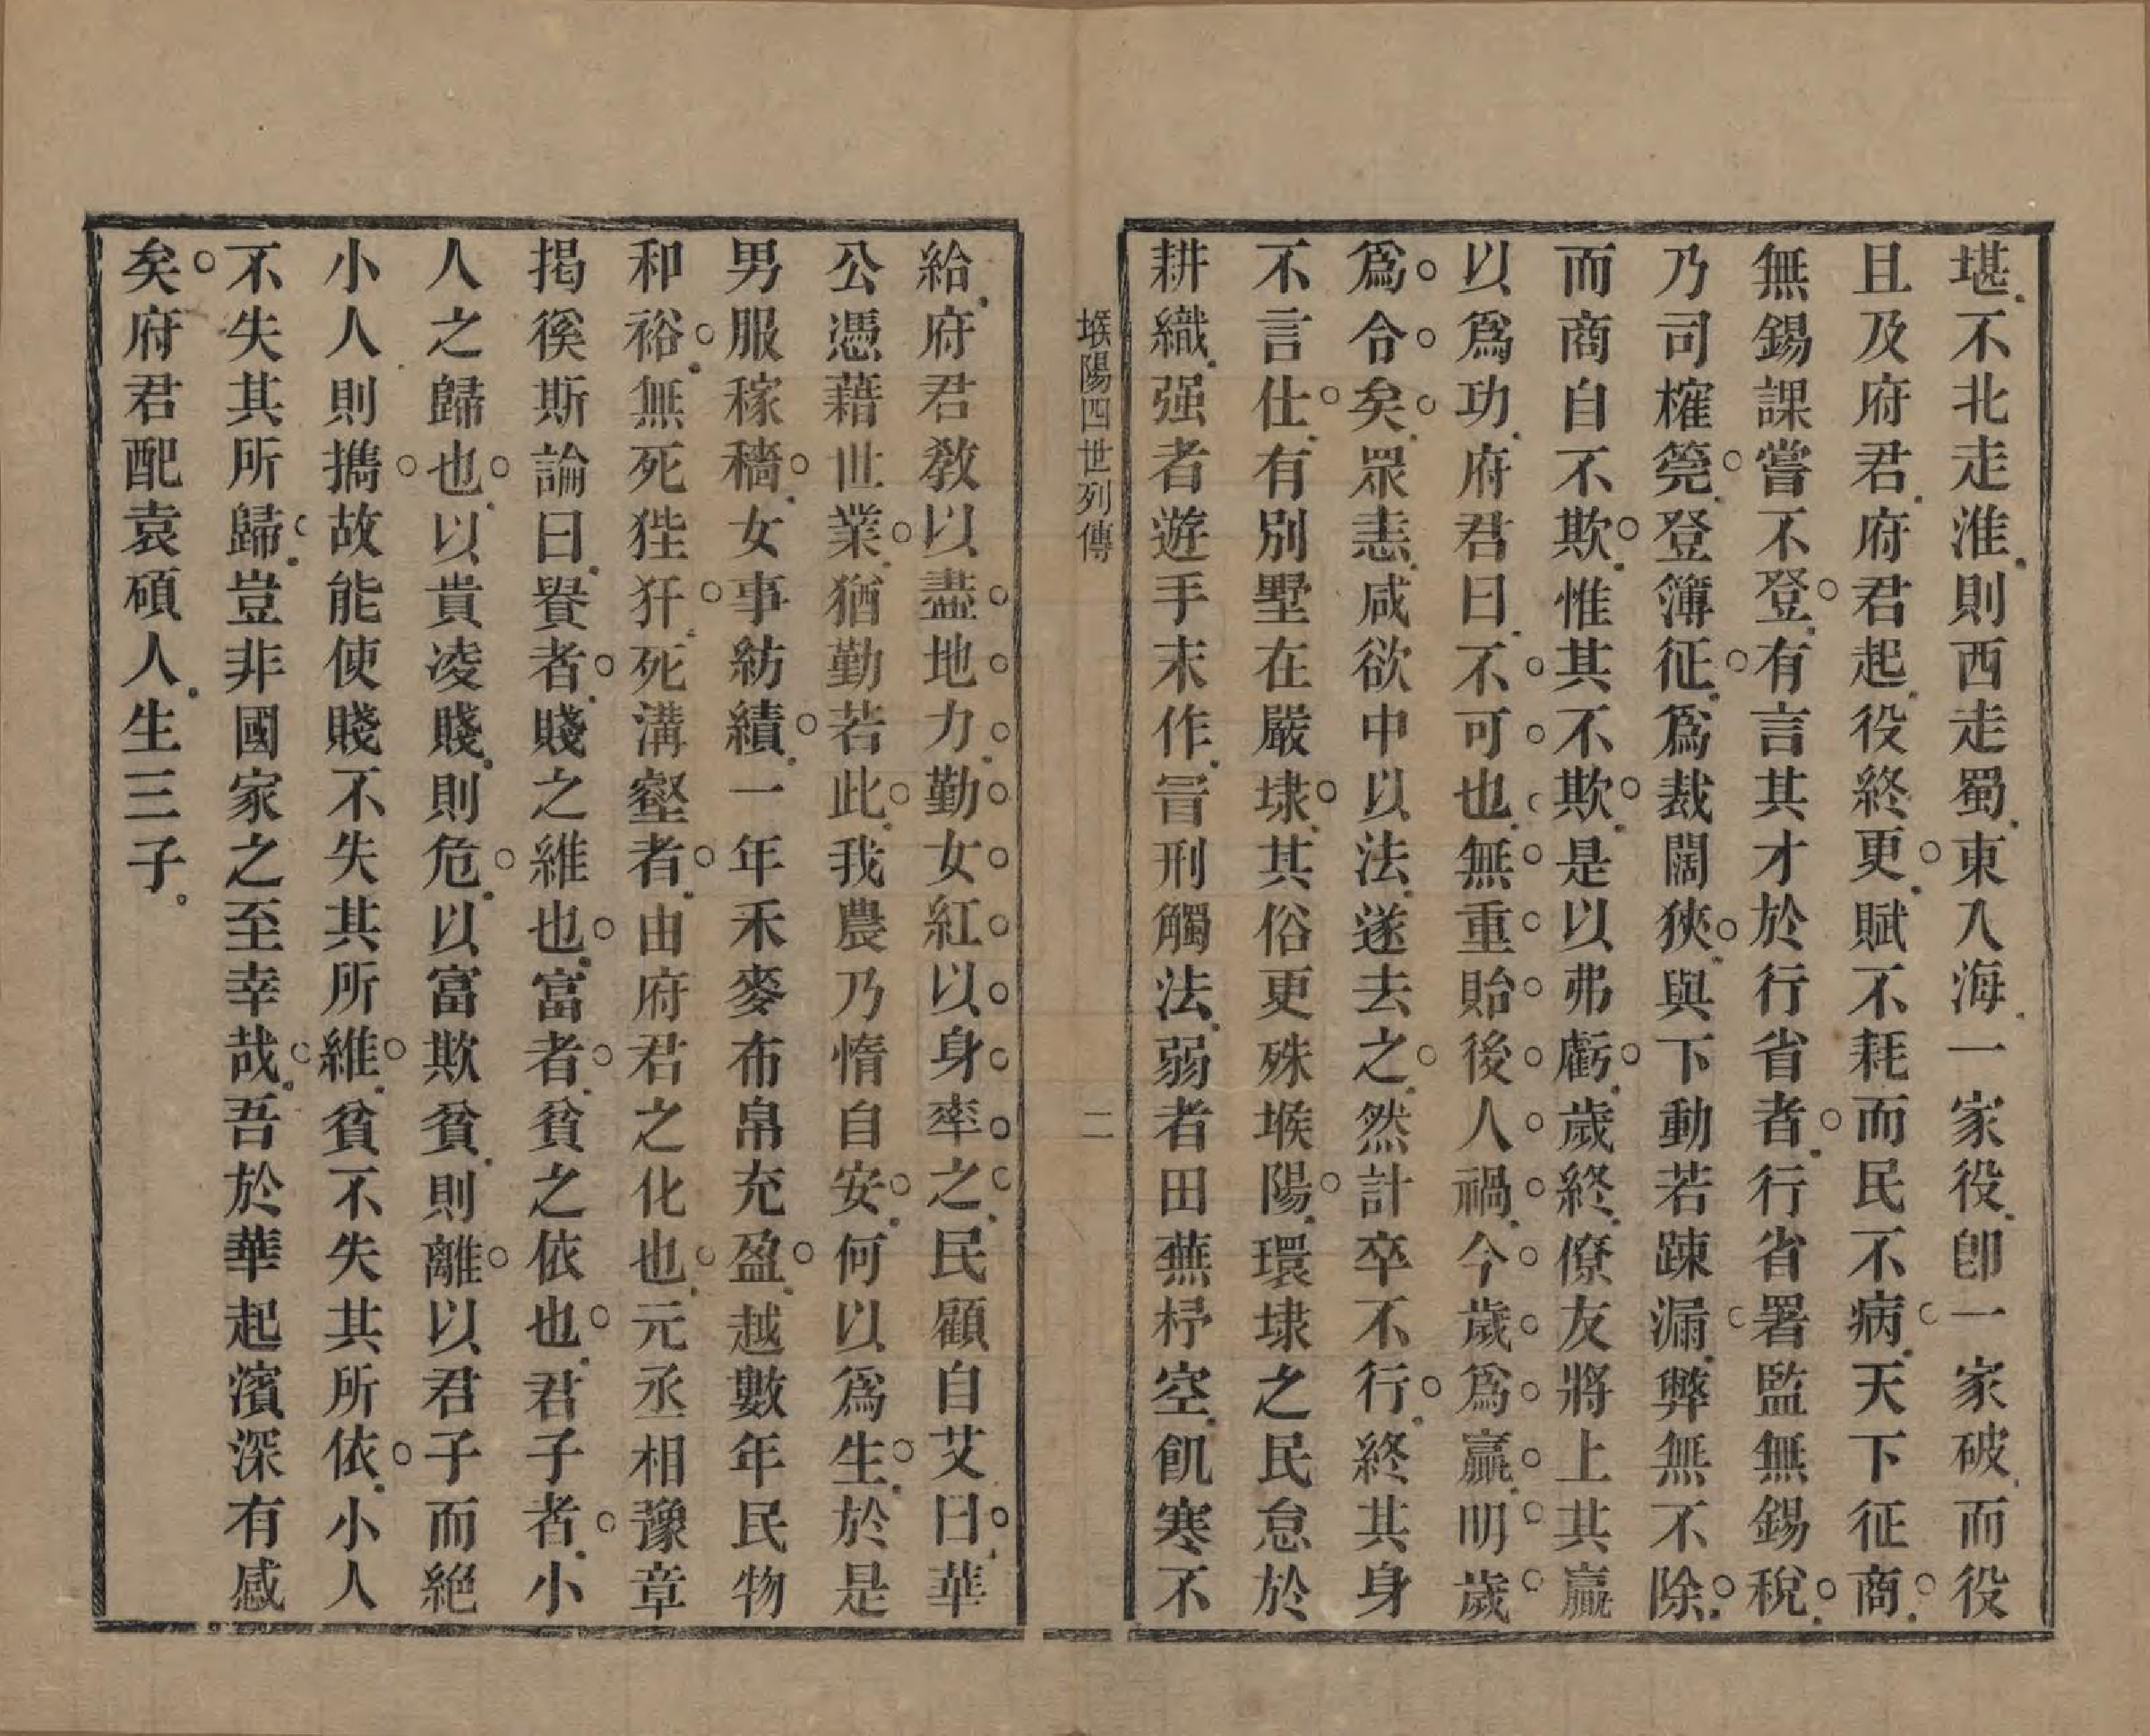 堪不北走淮則西走蜀東入海一家役卽一家破而役
且及府君府君起役終更賦不耗而民不病天下征商
無錫課嘗不登有言其才於行省者行省署監無錫稅
乃司榷筦登簿征爲裁闊狹與下動若踈漏弊無不除
而商自不欺惟其不欺是以弗虧歲終僚友將上其贏
以爲功府君曰不可也無重貽後人禍今歲爲贏明歲
爲令矣眾恚咸欲中以法遂去之然計卒不行終其身
不言仕有別墅在嚴埭其俗更殊堠陽環埭之民怠於
耕織强者遊手末作冒刑觸法弱者田蕪杼空飢寒不
堠陽四世列傳
二
給府君敎以盡地力勤女紅以身率之民顧自艾曰華
公憑藉世業猶勤若此我農乃惰自安何以爲生於是
男服稼穡女事紡績一年禾麥布帛充盈越數年民物
和裕無死狴犴死溝壑者由府君之化也元丞相豫章
揭徯斯論曰貴者賤之維也富者貧之依也君子者小
人之歸也以貴凌賤則危以富欺貧則離以君子而絕
小人則擕故能使賤不失其所維貧不失其所依小人
不失其所歸豈非國家之至幸哉吾於華起濱深有感
矣府君配袁碩人生三子